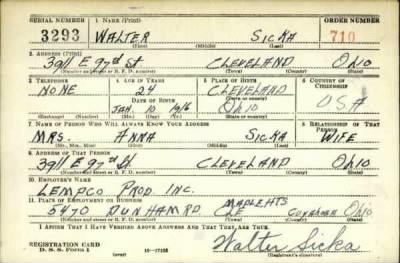 SERIAL NUMBER 1. NAME (Print) ORDER NUMBER
3293 WALTER SICKA 710
(First) (Middle) (Last)
2. ADDRESS (Print)
3911 E 97th St CLEVELAND OHIO
(Number and street or R. F. D. number) (Town) (County) (State)
3. TELEPHONE 4. AGE IN YEARS 5. PLACE OF BIRTH 6. COUNTRY OF CITIZENSHIP
NONE 24 CLEVELAND
DATE OF BIRTH (Town or county) USA
JAN. 10 1916 OHIO
(Exchange) (Number) (Mo.) (Day) (Yr.) (State or country)
7. NAME OF PERSON WHO WILL ALWAYS KNOW YOUR ADDRESS 8. RELATIONSHIP OF THAT PERSON
MRS. ANNA SICKA WIFE
(Mr., Mrs., Miss) (First) (Middle) (Last)
9. ADDRESS OF THAT PERSON
3911 E 97th St CLEVELAND OHIO
(Number and street or R. F. D. number) (Town) (County) (State)
10. EMPLOYER'S NAME
LEMPCO PROD. INC.
11. PLACE OF EMPLOYMENT OR BUSINESS MAPLE HTS
5470 DUNHAM RD. OHIO
(Number and street or R. F. D. number) (Town) (County) (State)
I AFFIRM THAT I HAVE VERIFIED ABOVE ANSWERS AND THAT THEY ARE TRUE.
REGISTRATION CARD
D. S. S. Form 1 (over) 16-17105 Walter Sicka